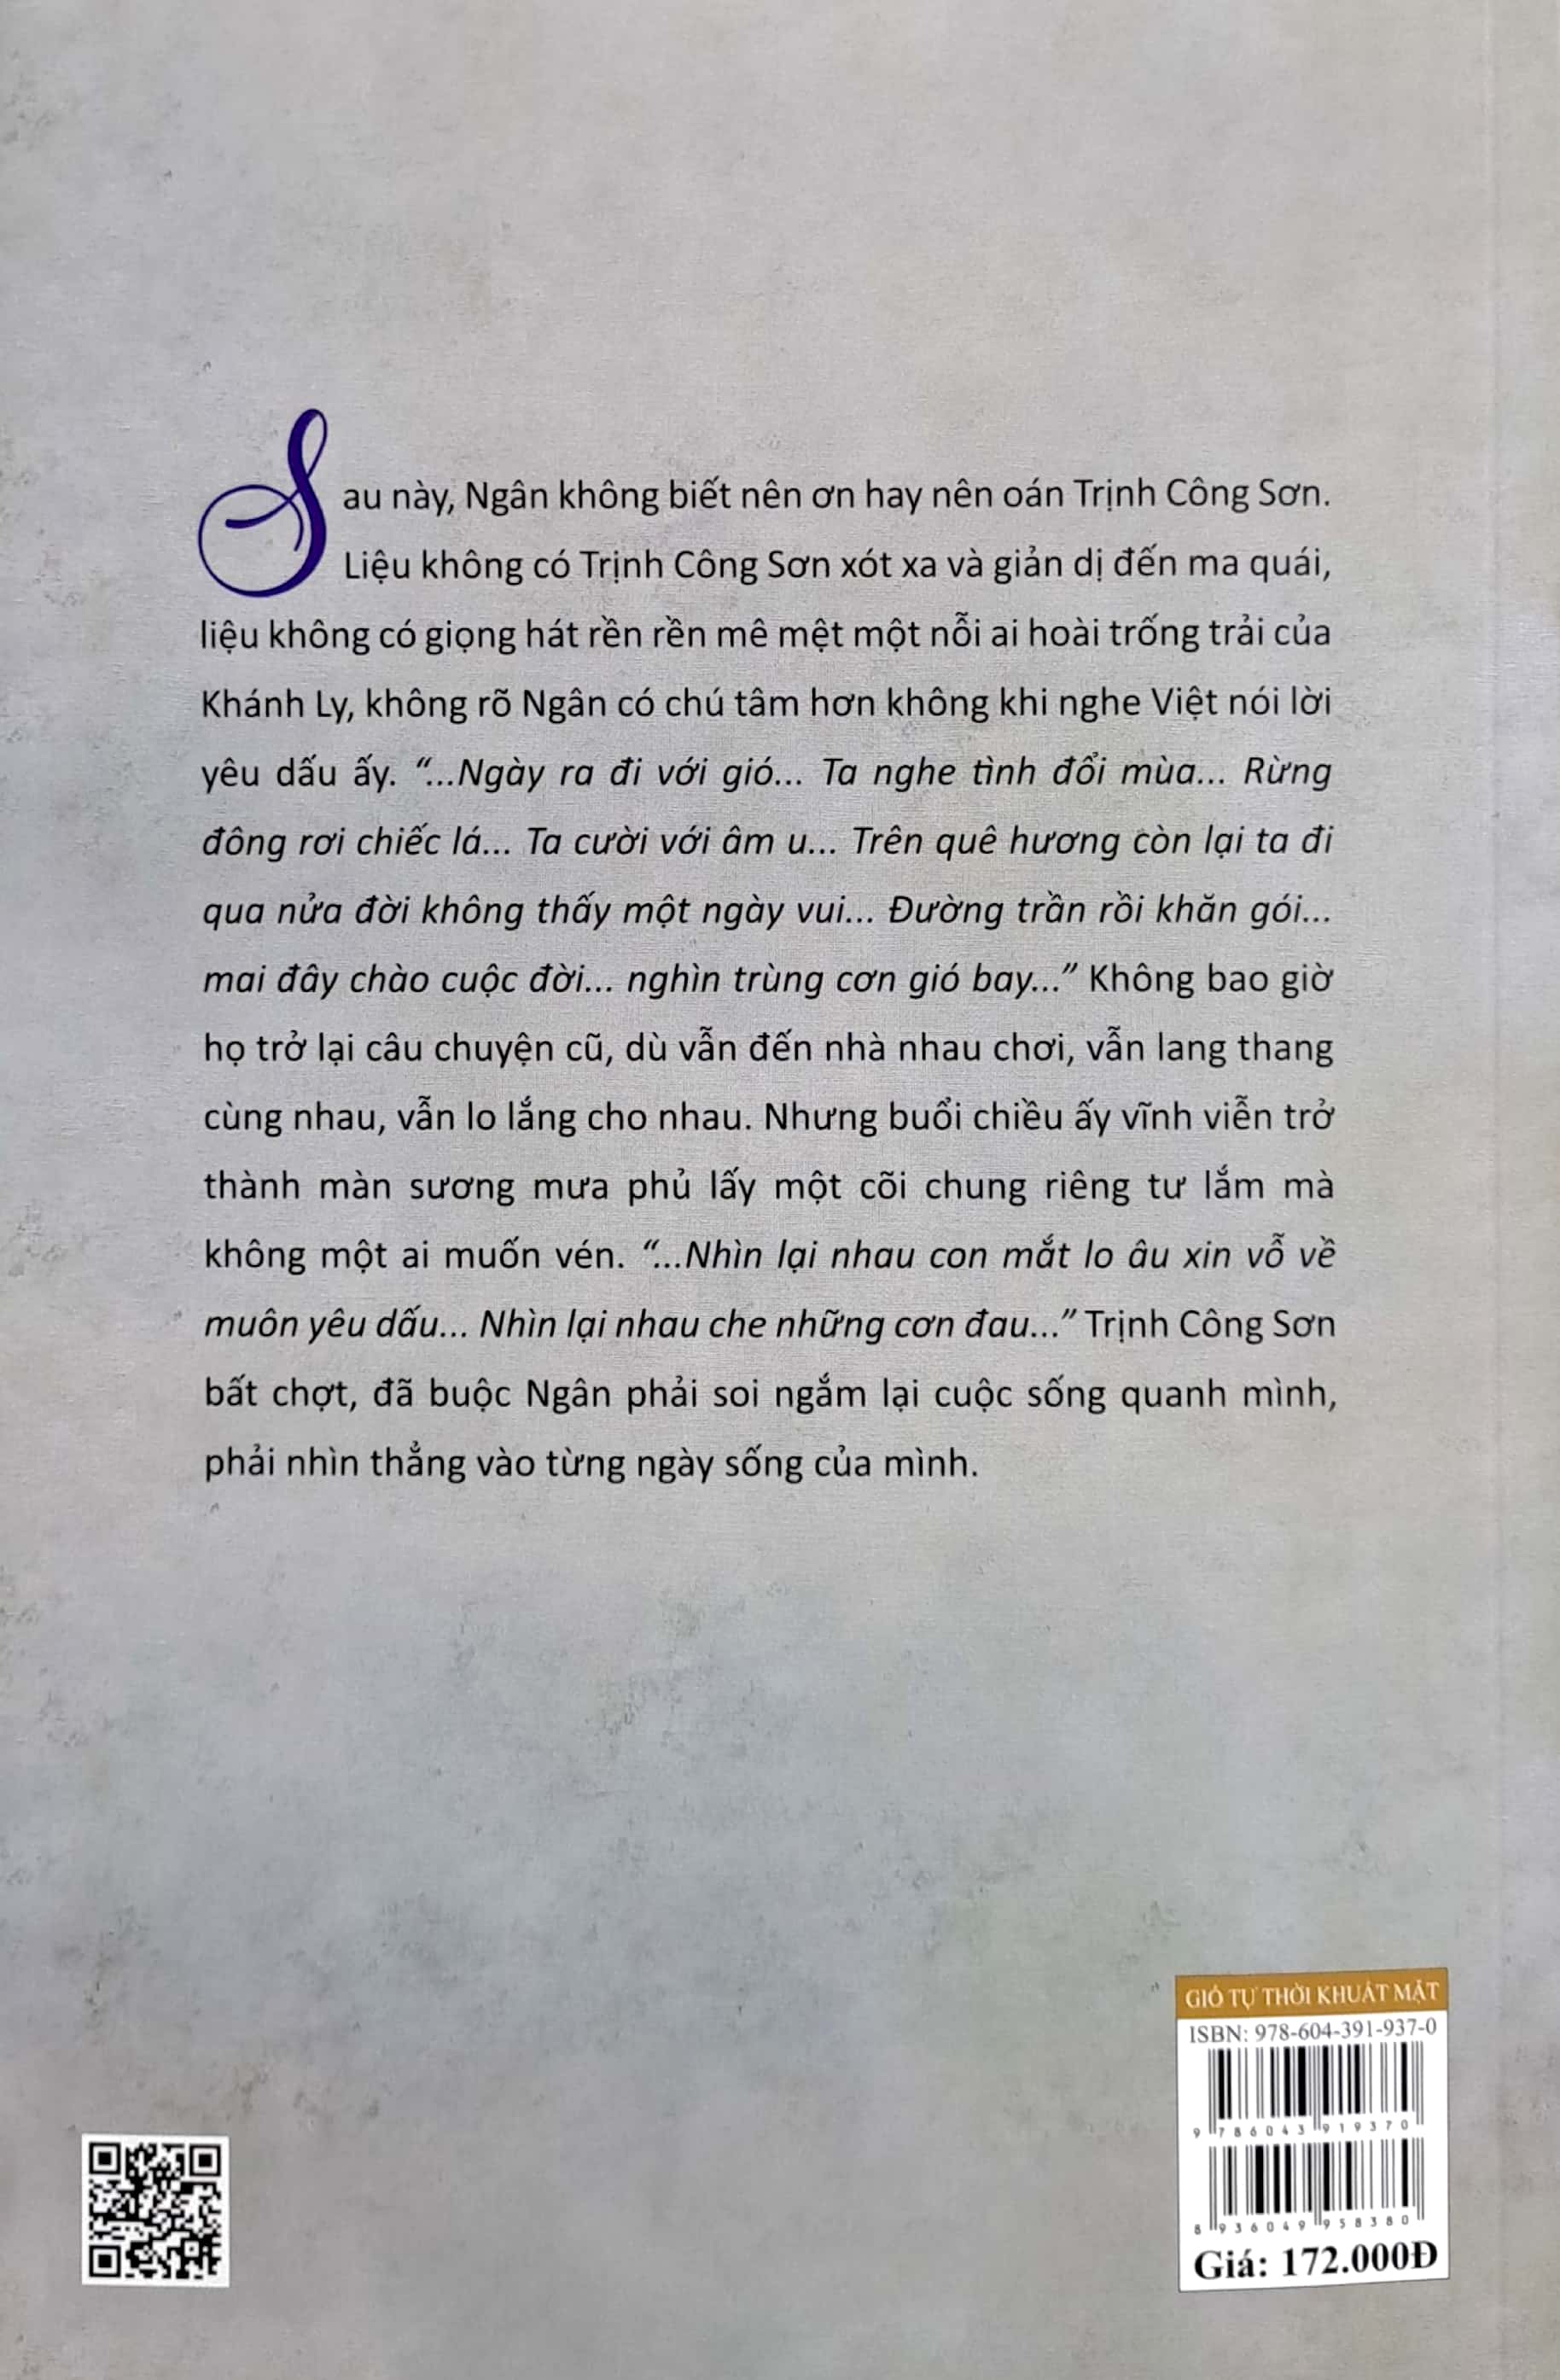 Sau này, Ngân không biết nên ơn hay nên oán Trịnh Công Sơn.
Liệu không có Trịnh Công Sơn xót xa và giản dị đến ma quái,
liệu không có giọng hát rền rền mê mệt một nỗi ai hoài trống trải của
Khánh Ly, không rõ Ngân có chú tâm hơn không khi nghe Việt nói lời
yêu dấu ấy. “...Ngày ra đi với gió... Ta nghe tình đổi mùa... Rừng
đông rơi chiếc lá... Ta cười với âm u... Trên quê hương còn lại ta đi
qua nửa đời không thấy một ngày vui... Đường trần rồi khăn gói...
mai đây chào cuộc đời... nghìn trùng cơn gió bay...” Không bao giờ
họ trở lại câu chuyện cũ, dù vẫn đến nhà nhau chơi, vẫn lang thang
cùng nhau, vẫn lo lắng cho nhau. Nhưng buổi chiều ấy vĩnh viễn trở
thành màn sương mưa phủ lấy một cõi chung riêng tư lắm mà
không một ai muốn vén. “...Nhìn lại nhau con mắt lo âu xin vỗ về
muôn yêu dấu... Nhìn lại nhau che những cơn đau...” Trịnh Công Sơn
bất chợt, đã buộc Ngân phải soi ngắm lại cuộc sống quanh mình,
phải nhìn thẳng vào từng ngày sống của mình.
GIÓ TỰ THỜI KHUẤT MẶT
ISBN: 978-604-391-937-0
9 786043 919370
8 936049 958380
Giá: 172.000Đ